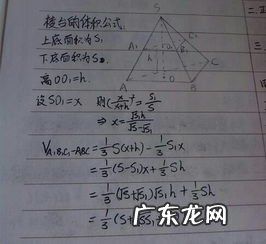 棱台的体积公式
上底面积为S₁
下底面积为S
高OO₁=h.
设SO₁=x 则(x/(x+h))²=S₁/S
⇒ x=√S₁h/(√S-√S₁)
V_{A₁B₁C₁-ABC}=1/3 S(x+h)-1/3 S₁x
=1/3(S-S₁)x+1/3 Sh
=1/3(√S+√S₁)√S₁h+1/3 Sh
=1/3(S+√SS₁
S
A₁
B₁
C₁
O₁
h
A
B
C
O
二.
广东龙网